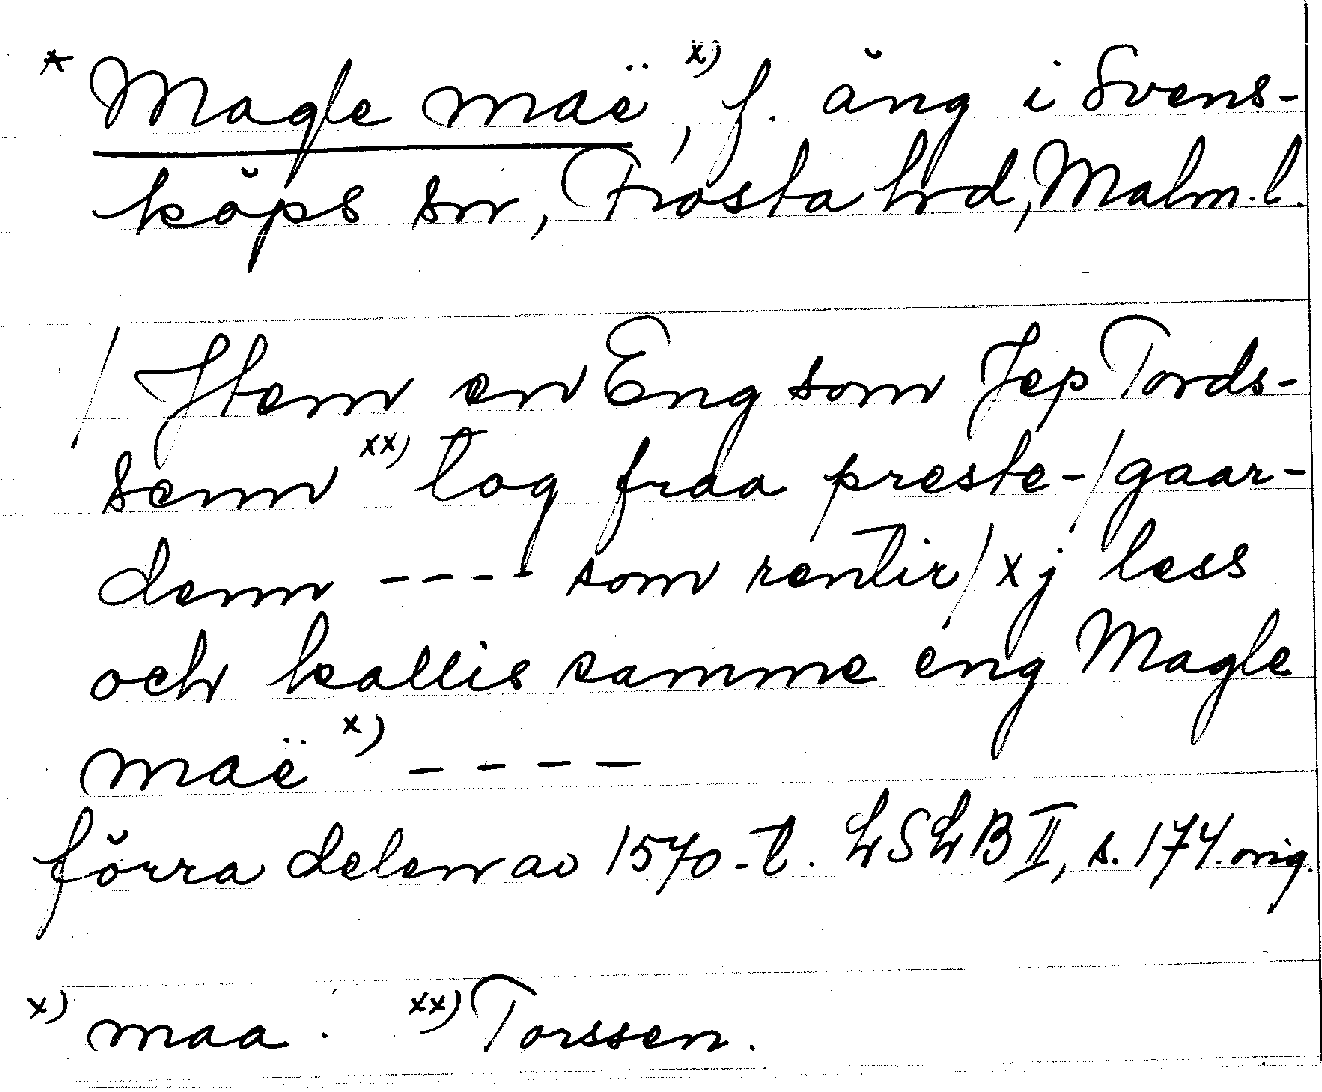 * Magle maë x), f. äng i Svens-
köps sn, Frosta hrd, Malm. l.
/ Item en Eng som Jep Tords-
senn xx) tog fraa preste-/gaar-
denn ---- som rentir/xj less
och kallis samme eng Magle
maë x) ----
förra delen av 1570-t. LSLB II, s. 174. orig.
x) maa. xx) Torssen.